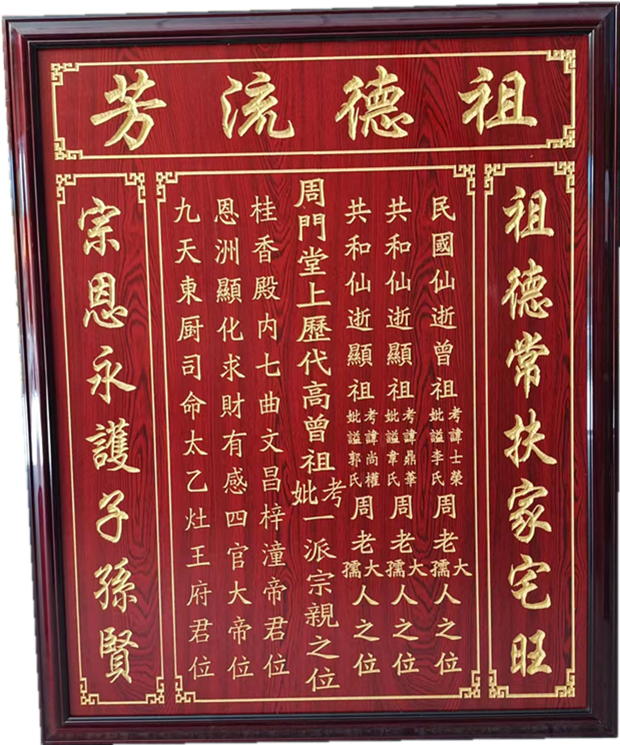 祖德流芳
祖德常扶家宅旺
民國仙逝曾祖考諱士榮妣謚李氏周老大孺人之位
共和仙逝顯祖考諱鼎華妣謚韋氏周老大孺人之位
共和仙逝顯祖考諱尚權妣謚郭氏周老大孺人之位
周門堂上歷代高曾祖考妣一派宗親之位
桂香殿内七曲文昌梓潼帝君位
恩洲顯化求財有感四官大帝位
九天東厨司命太乙灶王府君位
宗恩永護子孫賢